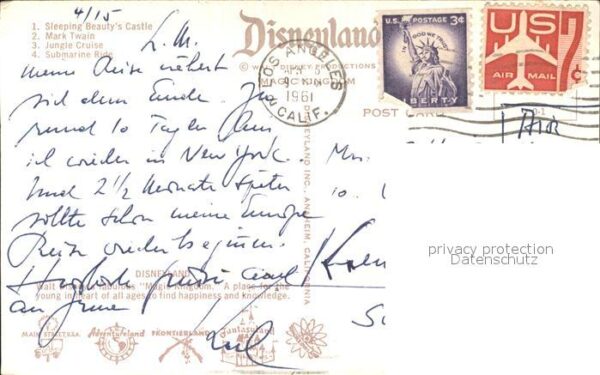 4/15
1. Sleeping Beauty's Castle
2. Mark Twain
3. Jungle Cruise
4. Submarine Ride
Disneyland
© WALT DISNEY PRODUCTIONS
MAGIC KINGDOM
POST CARD
LOS ANGELES
1961
CALIF.
U.S. POSTAGE 3¢
IN GOD WE TRUST
LIBERTY
US 7¢
AIR MAIL
L. M.
meine Reise nähert
sich dem Ende. In
rund 10 Tagen bin
ich wieder in New York.
Und 2 1/2 Monate später
sollte schon meine Europa
Reise wieder beginnen.
an
Karl
DISNEYLAND
"Magic Kingdom." A place for the
young in heart of all ages to find happiness and knowledge.
MAIN STREET U.S.A.
Adventureland
FRONTIERLAND
Fantasyland
DISNEYLAND INC., ANAHEIM, CALIFORNIA
Mrs.
10.
privacy protection
Datenschutz